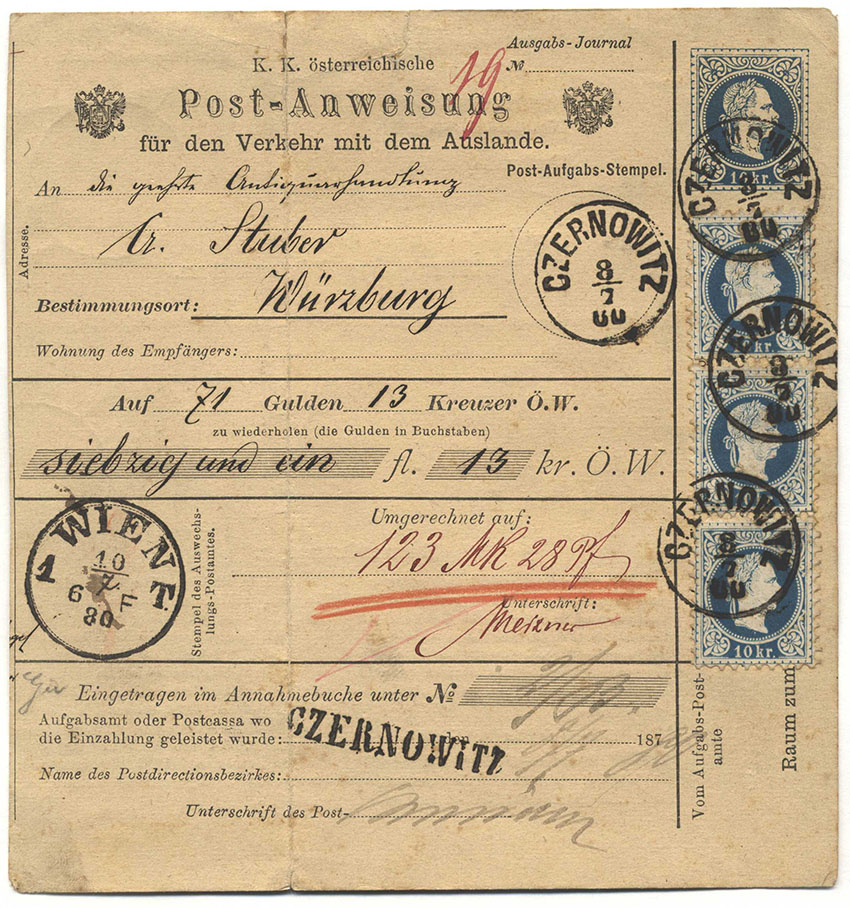 Ausgabs-Journal
K. K. österreichische
19
№
Post-Anweisung
für den Verkehr mit dem Auslande.
Post-Aufgabs-Stempel.
Adresse.
An die geehrte Antiquarhandlung
A. Stuber
Bestimmungsort: Würzburg
Wohnung des Empfängers:
CZERNOWITZ
8/7
80
10 kr.
CZERNOWITZ
8/7
80
kr.
CZERNOWITZ
8/7
80
CZERNOWITZ
8/7
80
10 kr.
Auf 71 Gulden 13 Kreuzer Ö.W.
zu wiederholen (die Gulden in Buchstaben)
siebzig und ein fl. 13 kr. Ö.W.
WIEN
1 T
10/7
6 F
80
Stempel des Auswechs-
lungs-Postamtes.
Umgerechnet auf:
123 Mk 28 Pf
Unterschrift:
Eingetragen im Annahmebuche unter №
Aufgabsamt oder Postcassa wo
die Einzahlung geleistet wurde: den 187
CZERNOWITZ
Name des Postdirectionsbezirkes:
Unterschrift des Post-
Vom Aufgabs-Post-
amte
Raum zum